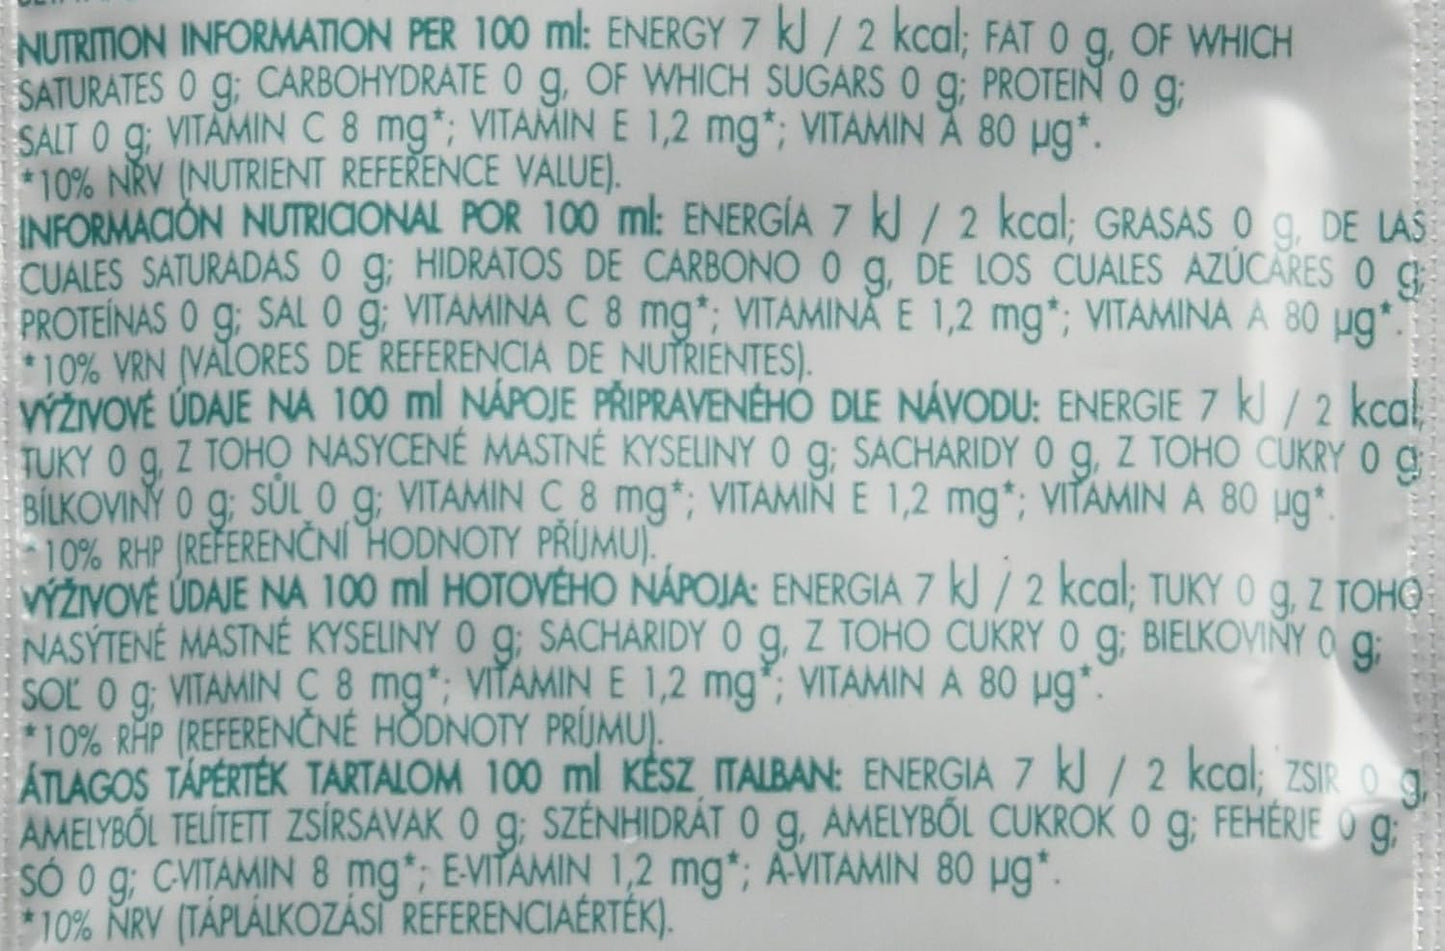 NUTRITION INFORMATION PER 100 ml: ENERGY 7 kJ / 2 kcal; FAT 0 g, OF WHICH
SATURATES 0 g; CARBOHYDRATE 0 g, OF WHICH SUGARS 0 g; PROTEIN 0 g;
SALT 0 g; VITAMIN C 8 mg*; VITAMIN E 1,2 mg*; VITAMIN A 80 µg*.
*10% NRV (NUTRIENT REFERENCE VALUE).
INFORMACIÓN NUTRICIONAL POR 100 ml: ENERGÍA 7 kJ / 2 kcal; GRASAS 0 g, DE LAS
CUALES SATURADAS 0 g; HIDRATOS DE CARBONO 0 g, DE LOS CUALES AZÚCARES 0 g;
PROTEÍNAS 0 g; SAL 0 g; VITAMINA C 8 mg*; VITAMINA E 1,2 mg*; VITAMINA A 80 µg*.
*10% VRN (VALORES DE REFERENCIA DE NUTRIENTES).
VÝŽIVOVÉ ÚDAJE NA 100 ml NÁPOJE PŘIPRAVENÉHO DLE NÁVODU: ENERGIE 7 kJ / 2 kcal;
TUKY 0 g, Z TOHO NASYCENÉ MASTNÉ KYSELINY 0 g; SACHARIDY 0 g, Z TOHO CUKRY 0 g;
BÍLKOVINY 0 g; SŮL 0 g; VITAMIN C 8 mg*; VITAMIN E 1,2 mg*; VITAMIN A 80 µg*.
*10% RHP (REFERENČNÍ HODNOTY PŘÍJMU).
VÝŽIVOVÉ ÚDAJE NA 100 ml HOTOVÉHO NÁPOJA: ENERGIA 7 kJ / 2 kcal; TUKY 0 g, Z TOHO
NASÝTENÉ MASTNÉ KYSELINY 0 g; SACHARIDY 0 g, Z TOHO CUKRY 0 g; BIELKOVINY 0 g;
SOĽ 0 g; VITAMIN C 8 mg*; VITAMIN E 1,2 mg*; VITAMIN A 80 µg*.
*10% RHP (REFERENČNÉ HODNOTY PRÍJMU).
ÁTLAGOS TÁPÉRTÉK TARTALOM 100 ml KÉSZ ITALBAN: ENERGIA 7 kJ / 2 kcal; ZSIR 0 g,
AMELYBŐL TELÍTETT ZSÍRSAVAK 0 g; SZÉNHIDRÁT 0 g, AMELYBŐL CUKROK 0 g; FEHÉRJE 0 g;
SÓ 0 g; C-VITAMIN 8 mg*; E-VITAMIN 1,2 mg*; A-VITAMIN 80 µg*.
*10% NRV (TÁPLÁLKOZÁSI REFERENCIAÉRTÉK).